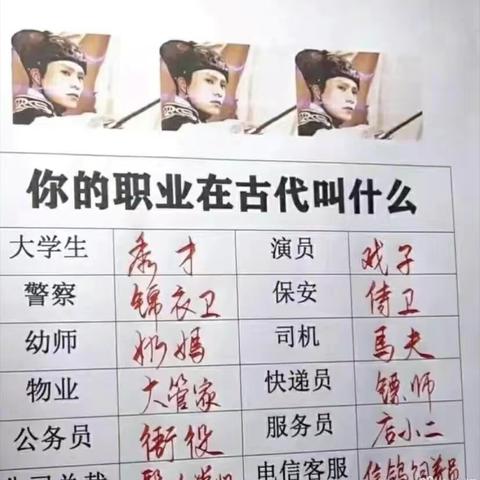 你的职业在古代叫什么
大学生 秀才 演员 戏子
警察 锦衣卫 保安 侍卫
幼师 奶媽 司机 馬夫
物业 大管家 快递员 镖师
公务员 衙役 服务员 店小二
电信客服 信鸽饲养员